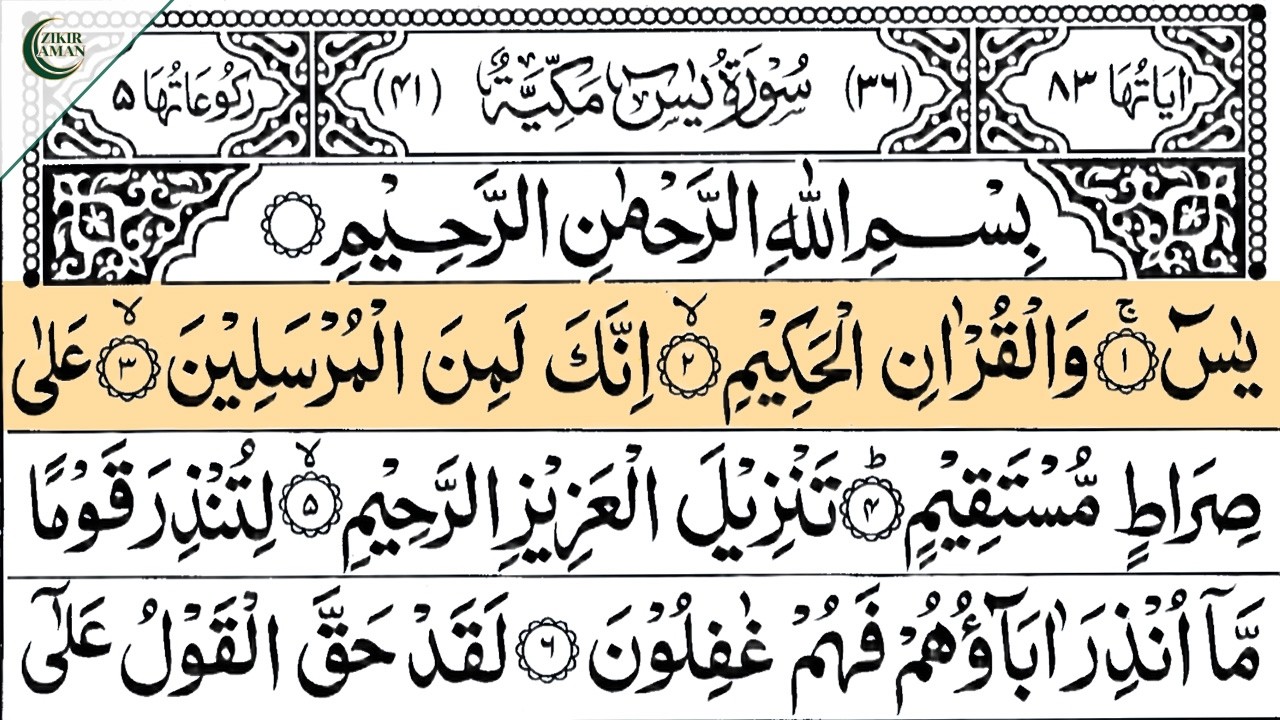 ZIKIR
AMAN
اٰيَاتُهَا ٨٣ (٣٦) سُوْرَةُ يٰسٓ مَكِّيَّةٌ (٤١) رُكُوْعَاتُهَا ٥
بِسْمِ اللّٰهِ الرَّحْمٰنِ الرَّحِيْمِ
يٰسٓ ۚ‏﴿١﴾ وَالْقُرْاٰنِ الْحَكِيْمِ ۙ‏﴿٢﴾ اِنَّكَ لَمِنَ الْمُرْسَلِيْنَ ۙ‏﴿٣﴾ عَلٰى
صِرَاطٍ مُّسْتَقِيْمٍ ؕ‏﴿۴﴾ تَنْزِيْلَ الْعَزِيْزِ الرَّحِيْمِ ۙ‏﴿۵﴾ لِتُنْذِرَ قَوْمًا
مَّاۤ اُنْذِرَ اٰبَآؤُهُمْ فَهُمْ غٰفِلُوْنَ ﴿۶﴾ لَقَدْ حَقَّ الْقَوْلُ عَلٰٓى